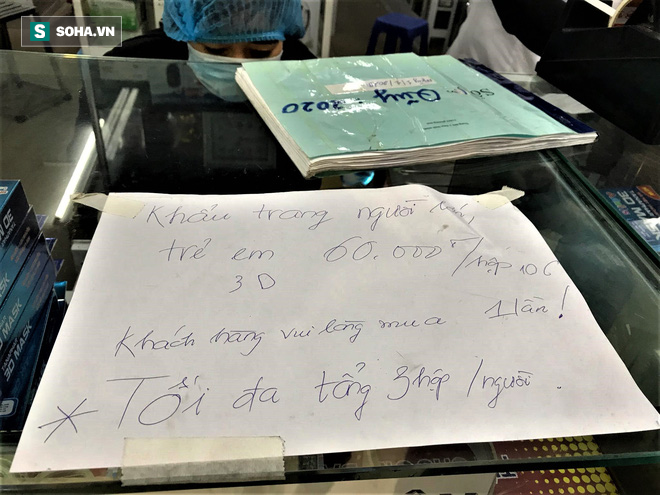 SOHA.VN
Sổ
Quầy
2020
Khẩu trang người lớn,
trẻ em 60.000đ/hộp 10C
3D
Khách hàng vui lòng mua 1 lần!
* Tối đa tổng 3 hộp/người.
3D MASK